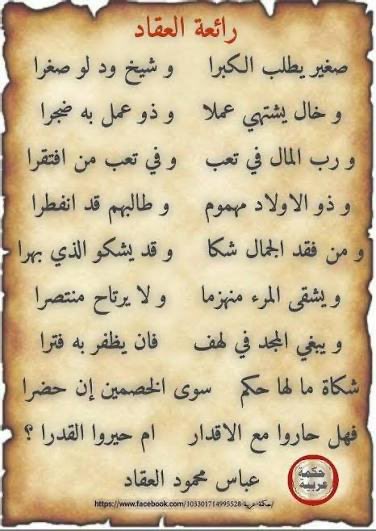 رائعة العقاد
صغير يطلب الكبرا و شيخ ود لو صغرا
و خال يشتهي عملا و ذو عمل به ضجرا
و رب المال في تعب و في تعب من افتقرا
و ذو الاولاد مهموم و طالبهم قد انفطرا
و من فقد الجمال شكا و قد يشكو الذي بهرا
و يشقى المرء منهزما و لا يرتاح منتصرا
و يبغي المجد في لهف فان يظفر به فترا
شكاة ما لها حكم سوى الخصمين إن حضرا
فهل حاروا مع الاقدار ام حيروا القدرا ؟
عباس محمود العقاد
حكمة عربية
https://www.facebook.com/حكمة-عربية-103301714995528/